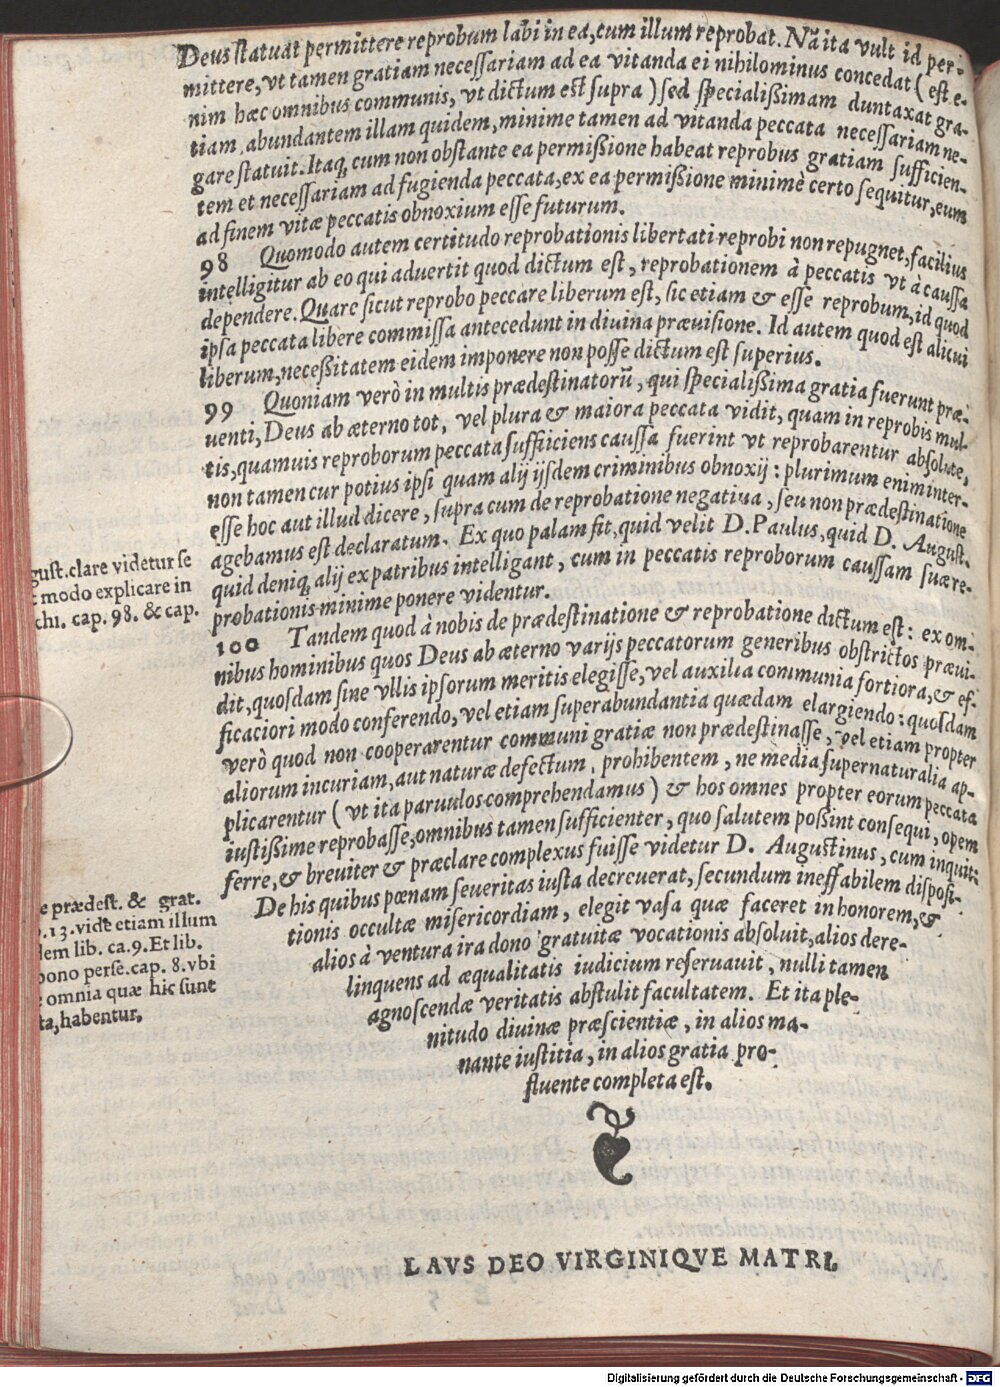 Deus statuat permittere reprobum labi in ea, cum illum reprobat. Nã ita vult id per-
mittere, vt tamen gratiam necessariam ad ea vitanda ei nihilominus concedat (est e-
nim hæc omnibus communis, vt dictum est supra) sed specialißimam duntaxat gra-
tiam, abundantem illam quidem, minime tamen ad vitanda peccata necessariam ne-
gare statuit. Itaq, cum non obstante ea permißione habeat reprobus gratiam sufficien-
tem et necessariam ad fugienda peccata, ex ea permißione minimè certo sequitur, eum
ad finem vitæ peccatis obnoxium esse futurum.
98 Quomodo autem certitudo reprobationis libertati reprobi non repugnet, facilius
intelligitur ab eo qui aduertit quod dictum est, reprobationem à peccatis vt à caussa
dependere. Quare sicut reprobo peccare liberum est, sic etiam & esse reprobum, id quod
ipsa peccata libere commissa antecedunt in diuina præuisione. Id autem quod est alicui
liberum, neceßitatem eidem imponere non posse dictum est superius.
99 Quoniam verò in multis prædestinatorũ, qui specialißima gratia fuerunt præ-
uenti, Deus ab æterno tot, vel plura & maiora peccata vidit, quam in reprobis mul-
tis, quamuis reproborum peccata suffiiciens caussa fuerint vt reprobarentur absolute,
non tamen cur potius ipsi quam alij ijsdem criminibus obnoxij: plurimum enim inter-
esse hoc aut illud dicere, supra cum de reprobatione negatiua, seu non prædestinatione
agebamus est declaratum. Ex quo palam fit, quid velit D. Paulus, quid D. August.
quid deniq, alij ex patribus intelligant, cum in peccatis reproborum caussam suæ re-
probationis minime ponere videntur.
gust. clare videtur se
modo explicare in
chi. cap. 98. & cap.
100 Tandem quod à nobis de prædestinatione & reprobatione dictum est: ex om-
nibus hominibus quos Deus ab æterno varijs peccatorum generibus obstrictos præui-
dit, quosdam sine vllis ipsorum meritis elegisse, vel auxilia communia fortiora, & ef-
ficaciori modo conferendo, vel etiam superabundantia quædam elargiendo: quosdam
verò quod non cooperarentur communi gratiæ non prædestinasse, vel etiam propter
aliorum incuriam, aut naturæ defectum, prohibentem, ne media supernaturalia ap-
plicarentur (vt ita paruulos comprehendamus) & hos omnes propter eorum peccata
iustißime reprobasse, omnibus tamen sufficienter, quo salutem poßint consequi, opem
ferre, & breuiter & præclare complexus fuisse videtur D. Augustinus, cum inquit:
De his quibus pœnam seueritas iusta decreuerat, secundum ineffabilem disposi-
tionis occultæ misericordiam, elegit vasa quæ faceret in honorem, &
alios à ventura ira dono gratuitæ vocationis absoluit, alios dere-
linquens ad æqualitatis iudicium reseruauit, nulli tamen
agnoscendæ veritatis abstulit facultatem. Et ita ple-
nitudo diuinæ præscientiæ, in alios ma-
nante iustitia, in alios gratia pro-
fluente completa est.
e prædest. & grat.
.13. vide etiam illum
dem lib. ca. 9. Et lib.
bono perse. cap. 8. vbi
omnia quæ hic sunt
ta, habentur.
LAVS DEO VIRGINIQVE MATRI.
Digitalisierung gefördert durch die Deutsche Forschungsgemeinschaft - DFG